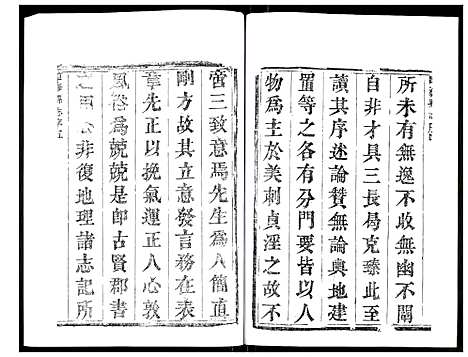 所未有無逸不收無幽不闡
自非才具三長曷克臻此至
讀其序述論贊無論輿地建
置等之各有分門要皆以人
物為主於美刺貞淫之故不
啻三致意焉先生為人簡直
剛方故其立意發言務在表
章先正以挽氣運正人心敦
風俗為兢兢是即古賢郡書
之非復地理諸志記所